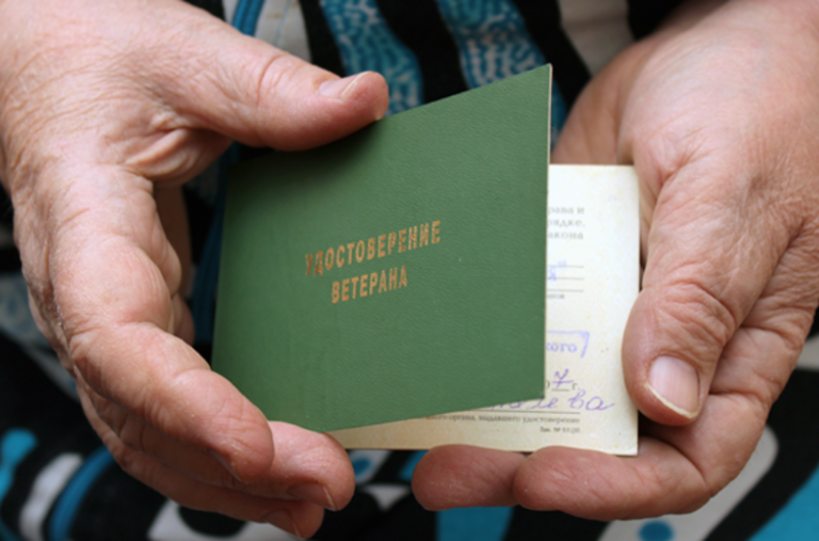 УДОСТОВЕРЕНИЕ
ВЕТЕРАНА
рава и
рядке,
акона
кого
7 г.
лева
органа, выдавшего удостоверение